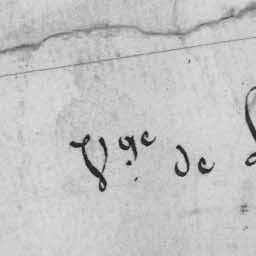 Vge de